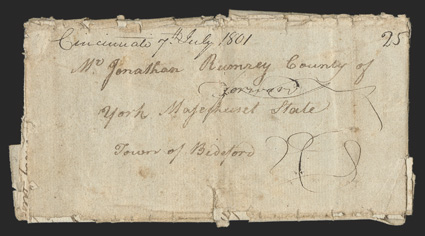 Cincinnati 7th July 1801
25
Mr Jonathan Rumsey County of
forward
York Massachuset State
Town of Bideford